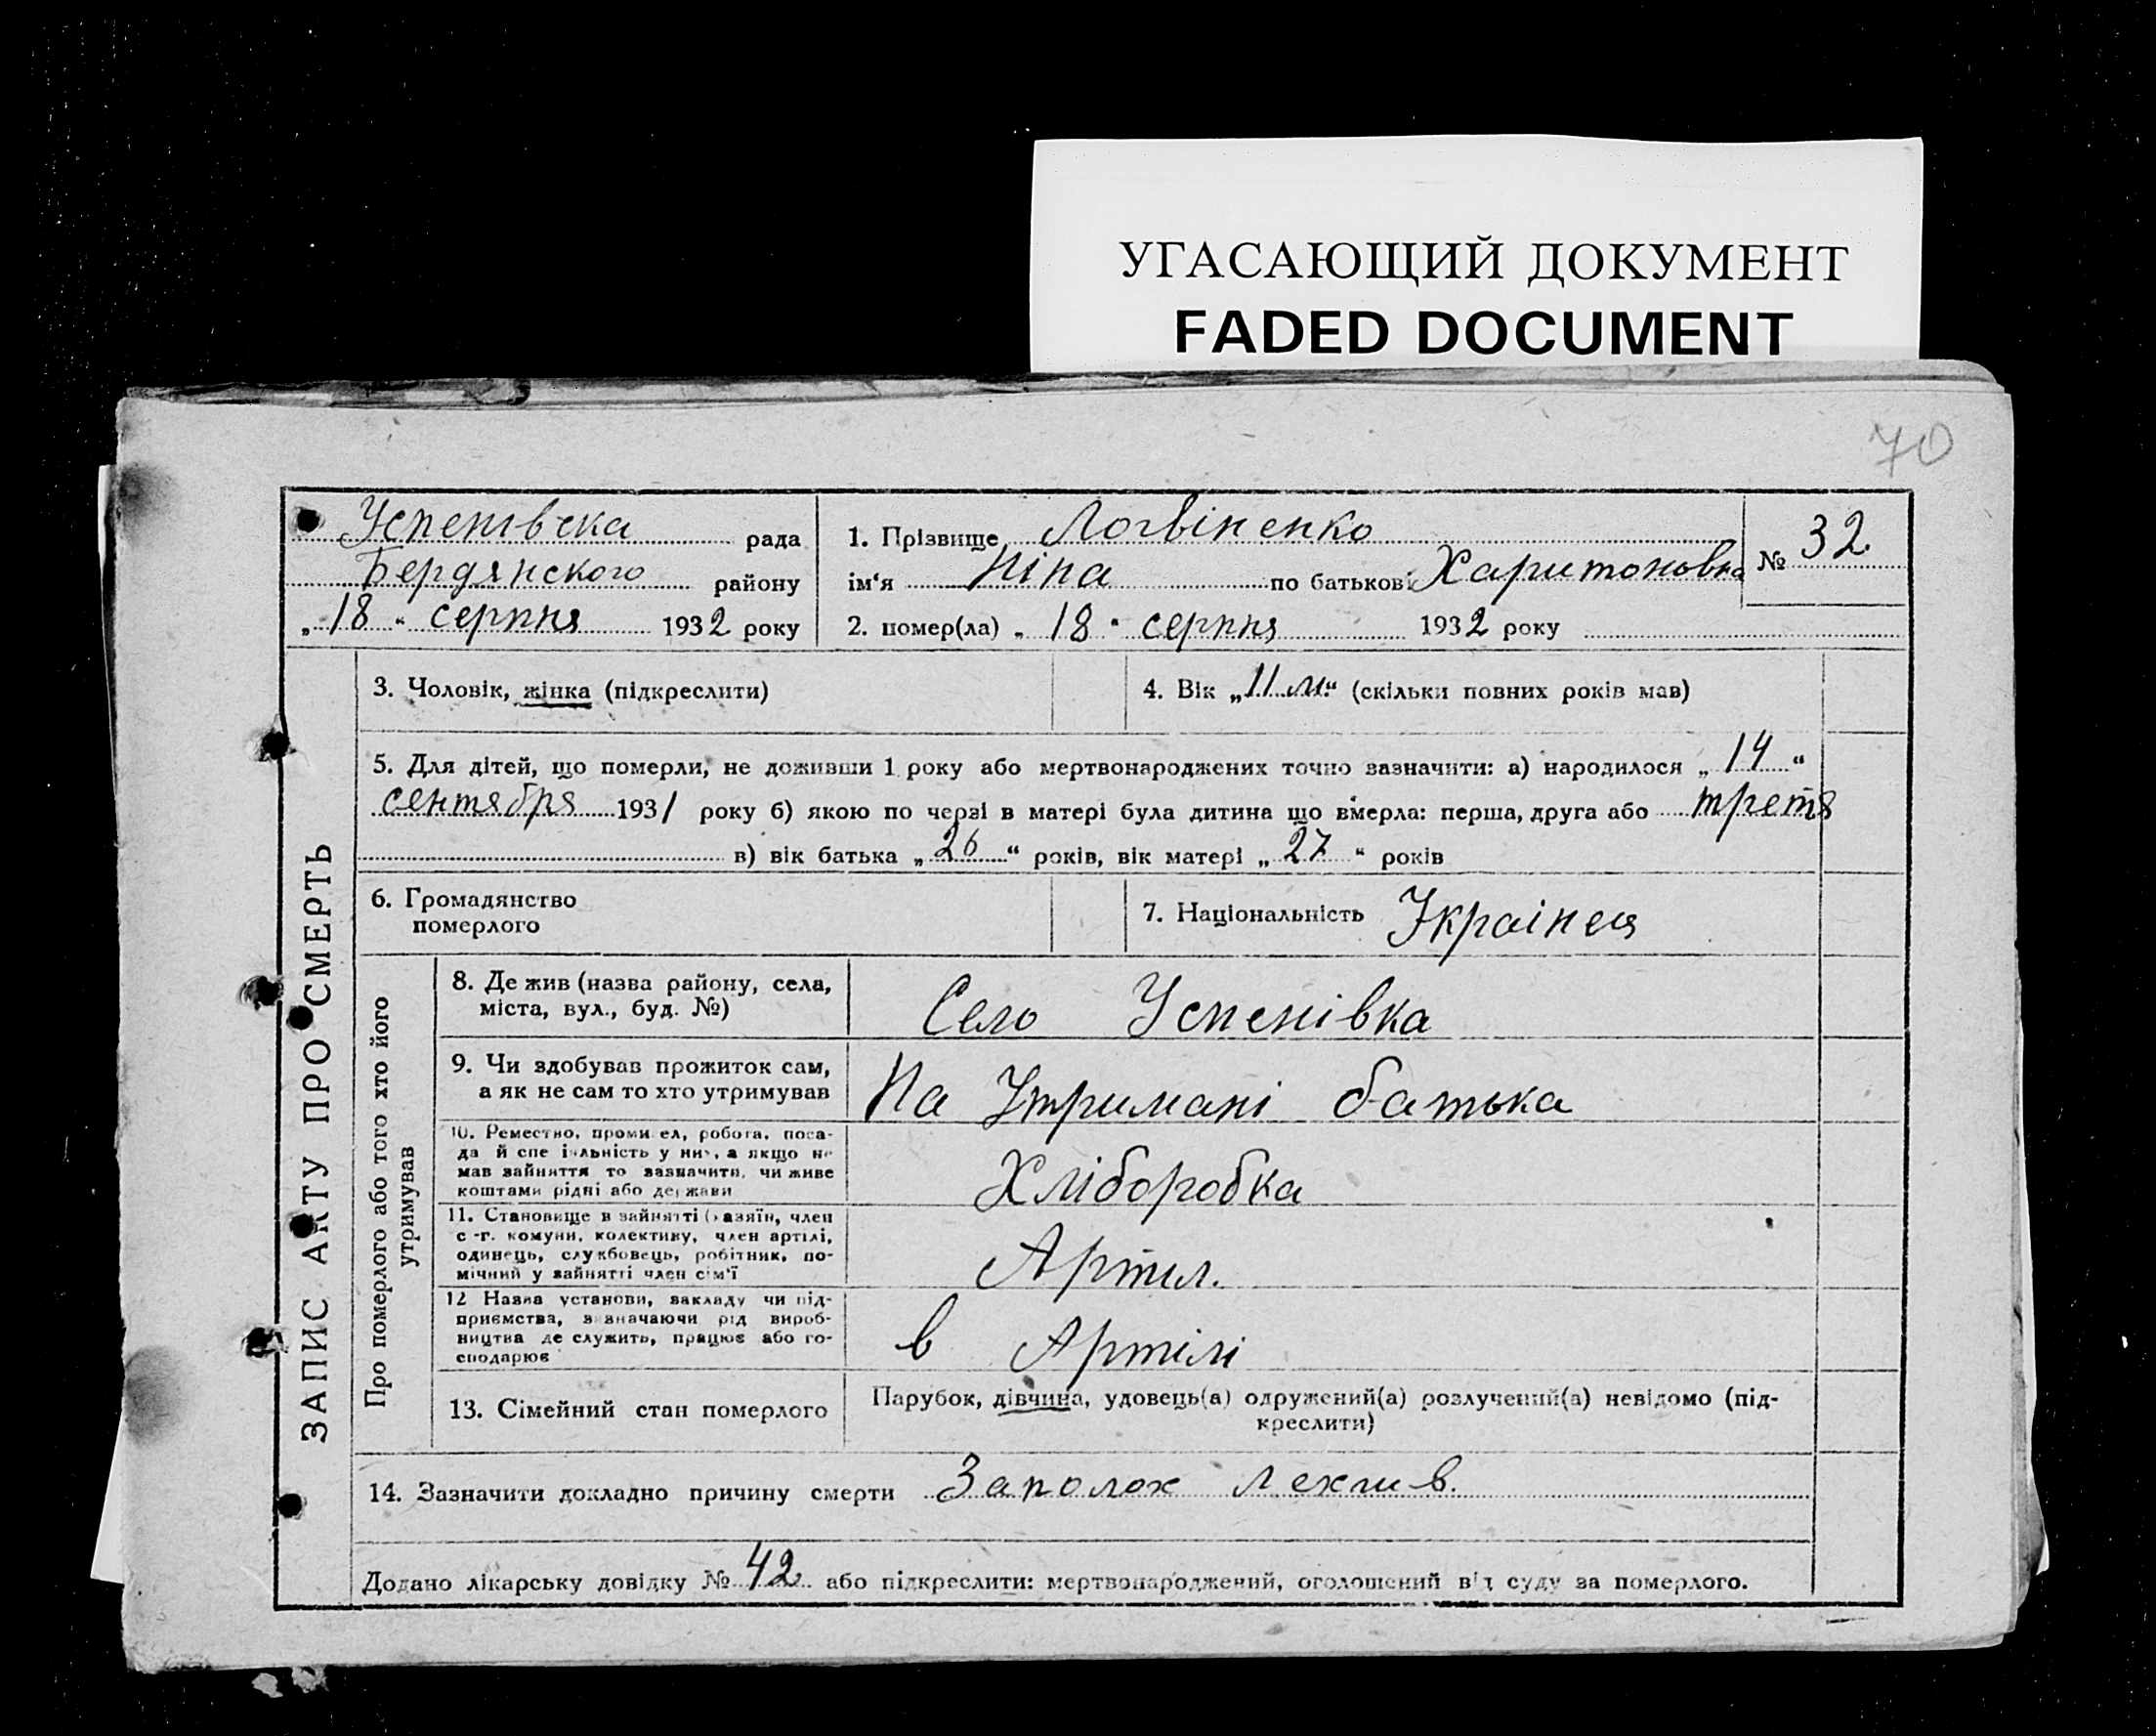 УГАСАЮЩИЙ ДОКУМЕНТ
FADED DOCUMENT
70
Успенівска рада
Бердянского району
„18“ серпня 1932 року
1. Прізвище Логвіненко
ім‘я Ніна по батькові Харитоновна
2. помер(ла) „18“ серпня 1932 року
№ 32
ЗАПИС АКТУ ПРО СМЕРТЬ
3. Чоловік, жінка (підкреслити)
4. Вік „11 м“ (скільки повних років мав)
5. Для дітей, що померли, не доживши 1 року або мертвонароджених точно зазначити: а) народилося „14“
сентября 1931 року б) якою по черзі в матері була дитина що вмерла: перша, друга або третя
в) вік батька „26“ років, вік матері „27“ років
6. Громадянство
померлого
7. Національність Украінец
Про померлого або того хто його
утримував
8. Де жив (назва району, села,
міста, вул., буд. №)
Село Успенівка
9. Чи здобував прожиток сам,
а як не сам то хто утримував
На Утримані батька
10. Реместно, промисел, робота, поса-
да й спеціяльність у них, а якщо не
мав зайняття то зазначити, чи живе
коштами рідні або держави
Хліборобка
11. Становище в зайнятті (хазяїн, член
с.-г. комуни, колективу, член артілі,
одинець, службовець, робітник, по-
мічний у зайнятті член сім‘ї
Артил.
12 Назва установи, закладу чи під-
приємства, зазначаючи рід вироб-
ництва де служить, працює або го-
сподарює
в Артілі
13. Сімейний стан померлого
Парубок, дівчина, удовець(а) одружений(а) розлучений(а) невідомо (під-
креслити)
14. Зазначити докладно причину смерти Заполох Лехлив.
Додано лікарську довідку № 42 або підкреслити: мертвонароджений, оголошений від суду за померлого.